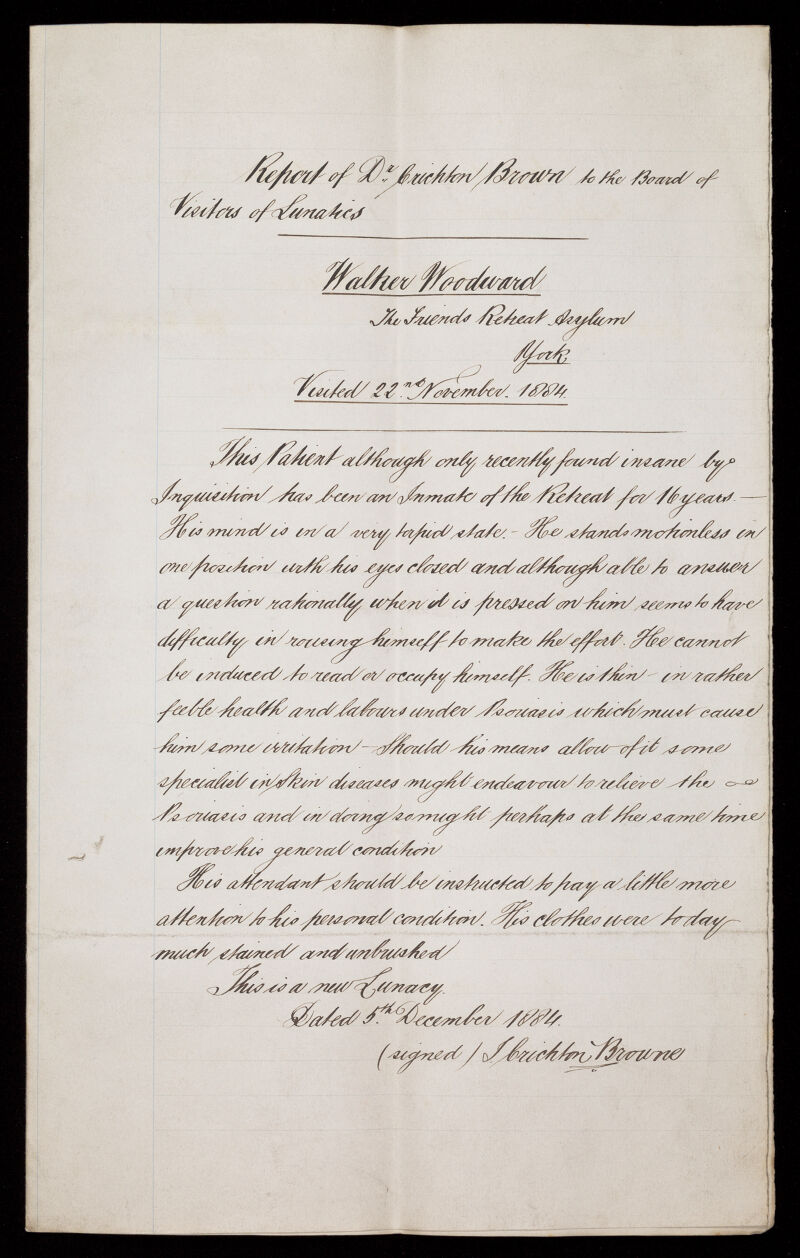 Report of Dr. Crichton Brown to the Board of
Visitors of Lunatics
Walker Woodward
The Friends Retreat Asylum
York
Visited 22nd. November. 1884.
This Patient although only recently found insane by
Inquisition has been an Inmate of the Retreat for 16 years. —
His mind is in a very torpid state. - He stands motionless in
one position with his eyes closed and although able to answer
a question rationally when it is pressed on him seems to have
difficulty in rousing himself to make the effort. He cannot
be induced to read or occupy himself. He is thin - in rather
feeble health and labours under Psoriasis which must cause
him some irritation - Should his means allow of it some
specialist in Skin diseases might endeavour to relieve the
Psoriasis and in doing so might perhaps at the same time
improve his general condition
His attendant should be instructed to pay a little more
attention to his personal condition. His clothes were to day
much stained and unbrushed
This is a new Lunacy.
Dated 5th. December 1884.
(signed) J Crichton Browne